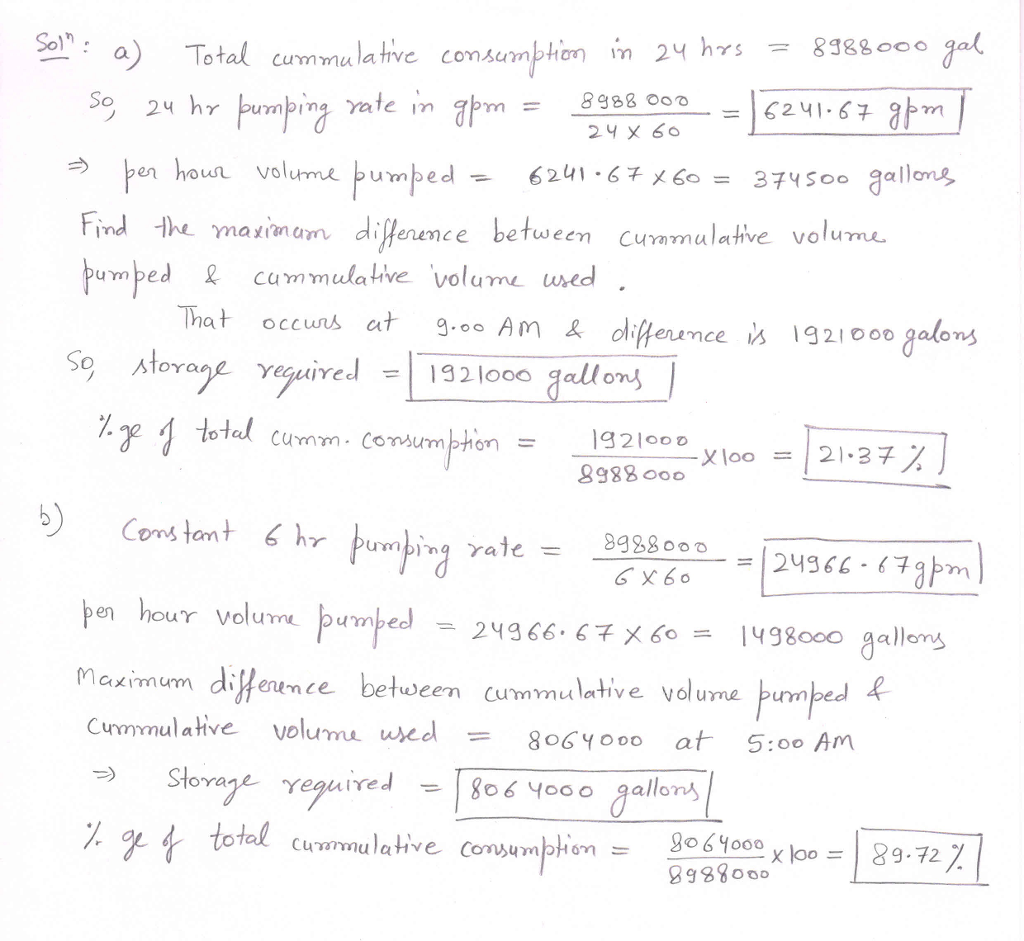 Solⁿ: a) Total cummulative consumption in 24 hrs = 8988000 gal
So, 24 hr pumping rate in gpm = 8988 000 / 24 X 60 = 6241.67 gpm
⇒ per hour volume pumped = 6241.67 x 60 = 374500 gallons
Find the maximum difference between cummulative volume
pumped & cummulative volume used.
That occurs at 9.00 AM & difference is 1921000 galons
So, storage required = 1921000 gallons
%ge of total cumm. consumption = 1921000 / 8988000 X 100 = 21.37 %
b) Constant 6 hr pumping rate = 8988000 / 6 X 60 = 24966.67gpm
per hour volume pumped = 24966.67 X 60 = 1498000 gallons
Maximum difference between cummulative volume pumped &
cummulative volume used = 8064000 at 5:00 AM
⇒ Storage required = 8064000 gallons
% ge of total cummulative consumption = 8064000 / 8988000 x 100 = 89.72 %